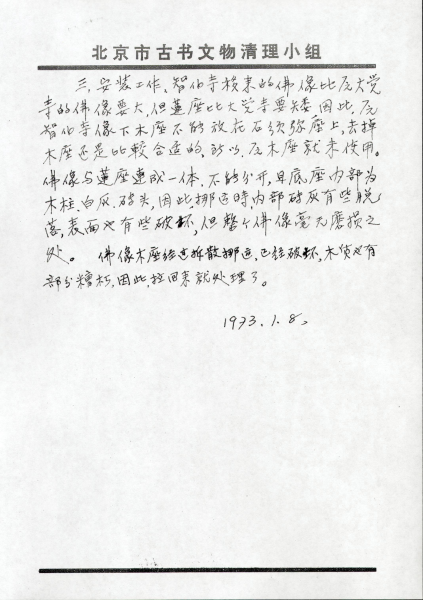 北京市古书文物清理小组
三、安装工作、智化寺移来的佛像比原大觉
寺的佛像要大,但莲座比大觉寺要矮,因此,原
智化寺像下木座不能放在石须弥座上,去掉
木座还是比较合适的,所以,原木座就未使用。
佛像与莲座连成一体,不能分开,且底座内部为
木柱、白灰、砖头,因此,挪运時内部砖灰有些脱
落,表面也有些破坏,但整个佛像毫无磨损之
处。 佛像木座经过拆散挪运,已经破坏,木质也有
部分糟朽,因此,拉回来就处理了。
1973.1.8、